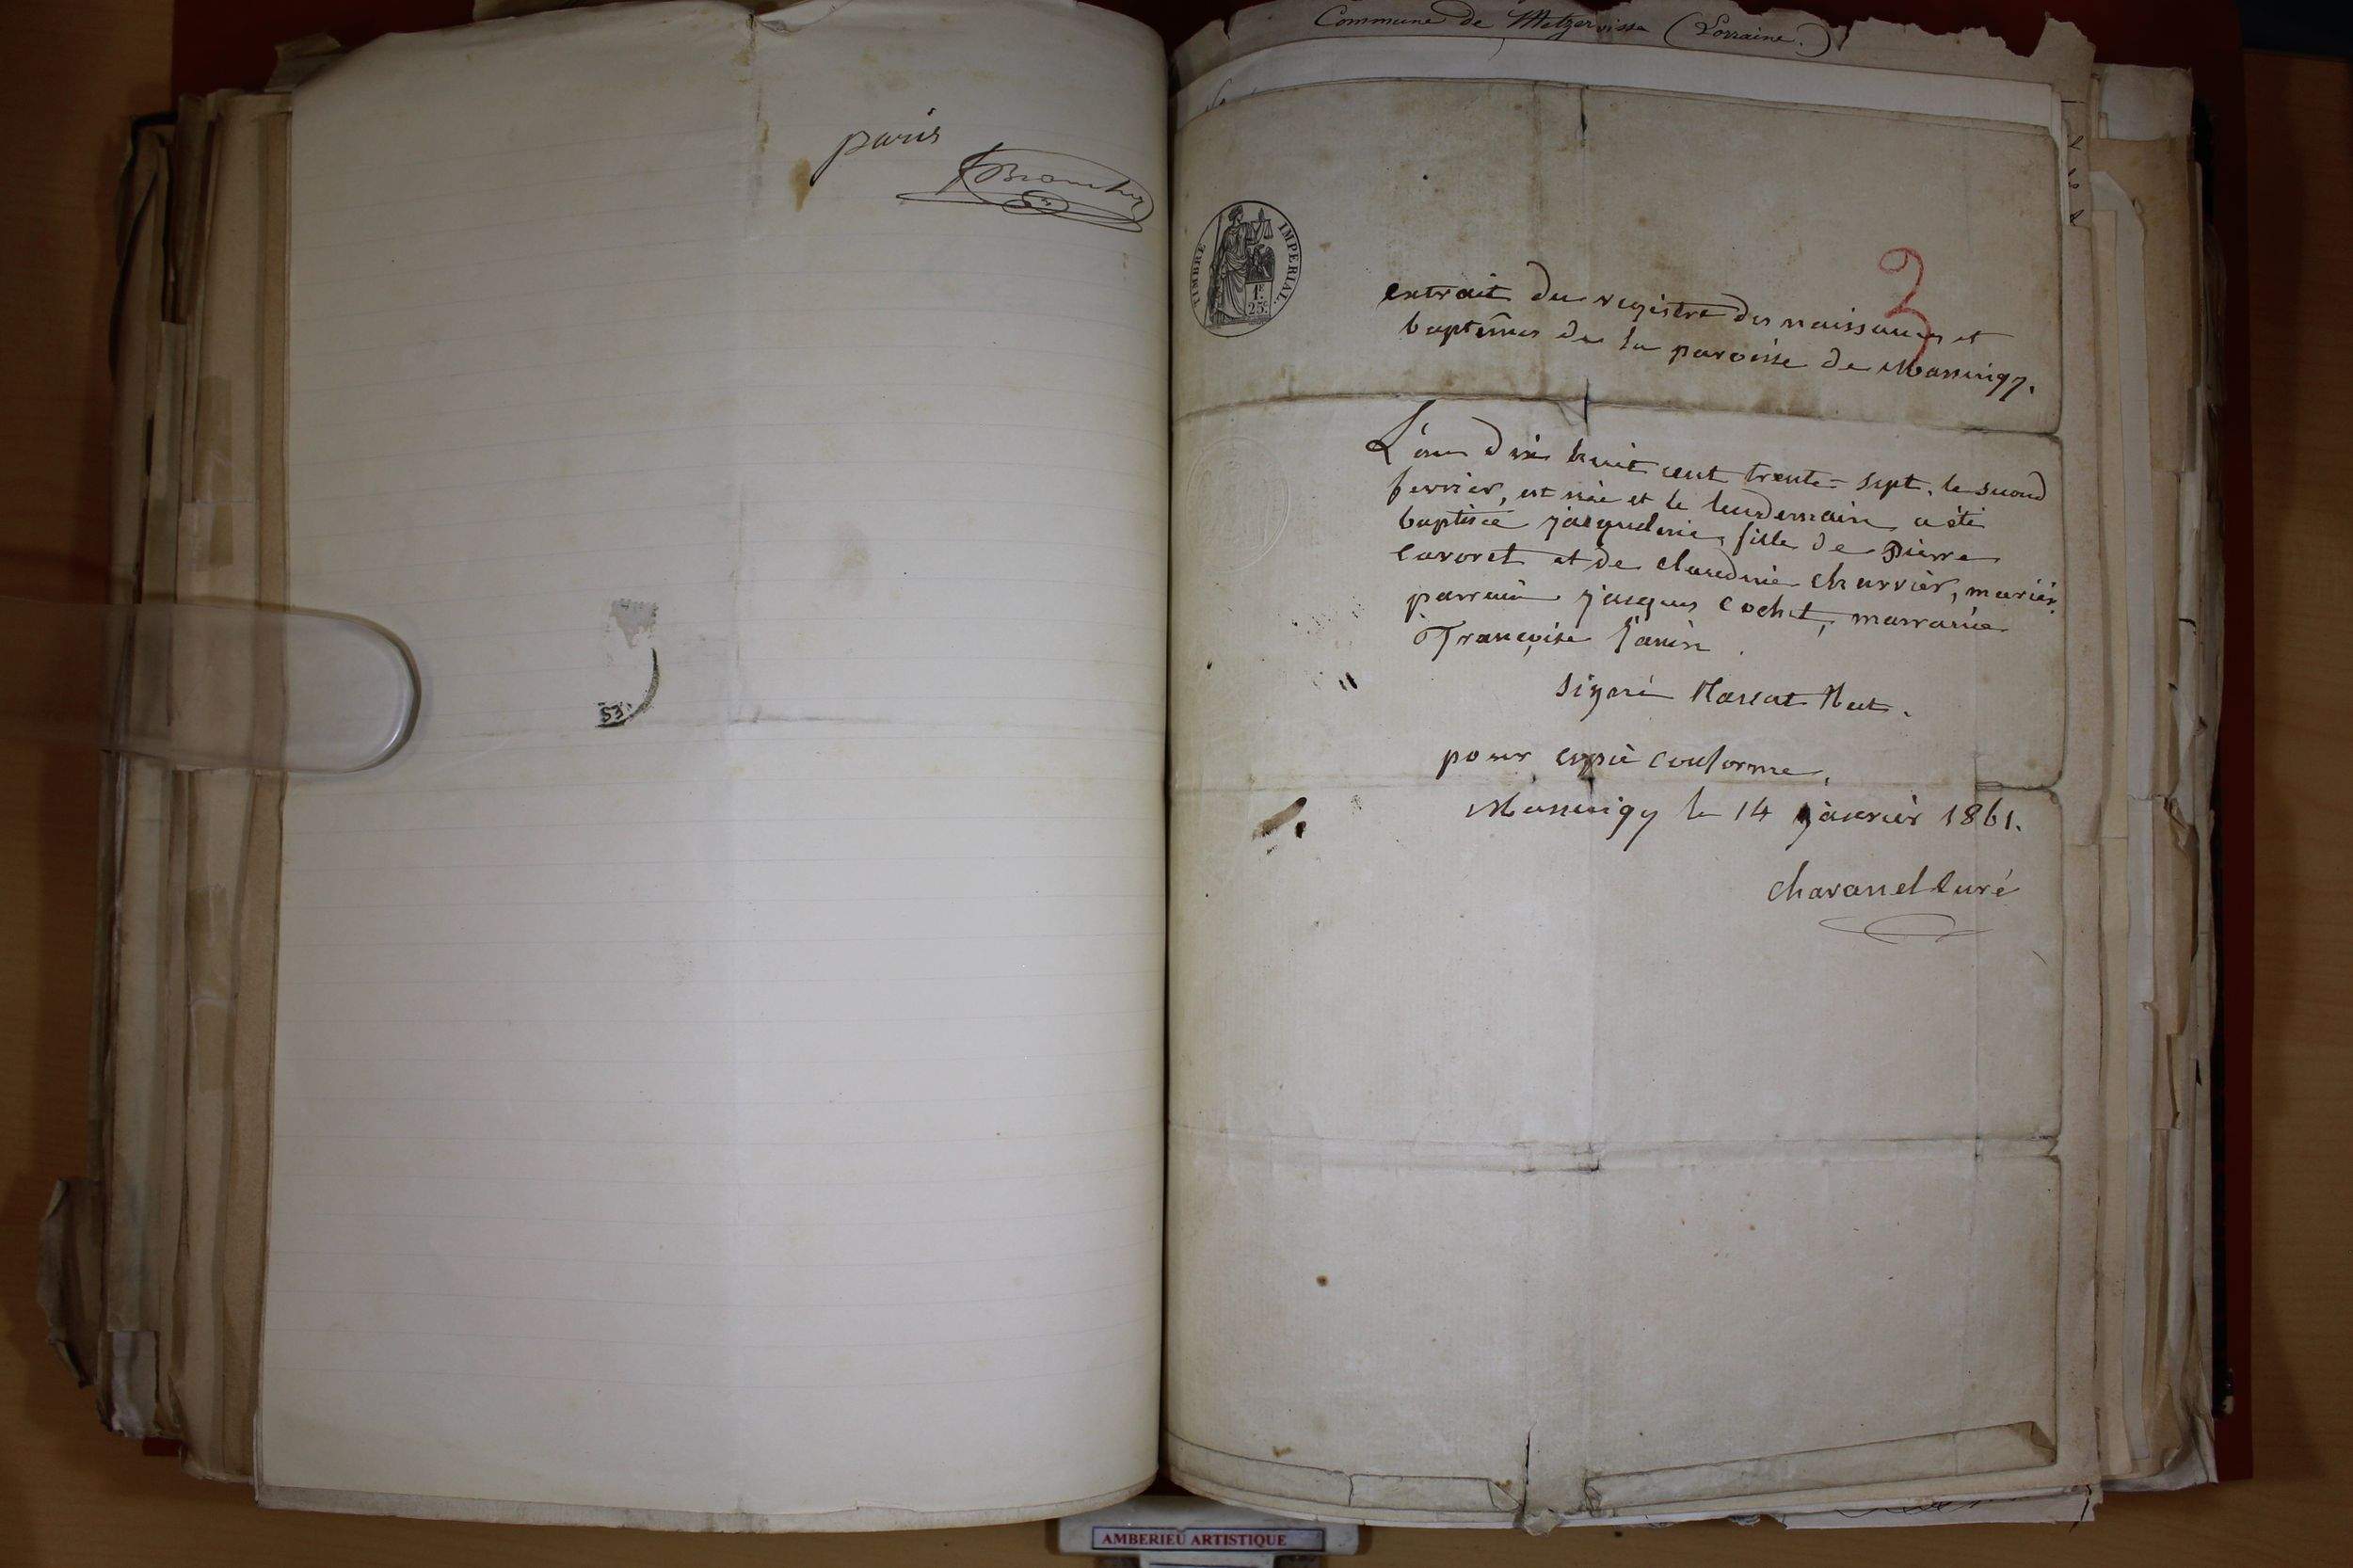 paris
Commune de Metzervisse (Lorraine.)
TIMBRE IMPERIAL.
1F.
25c.
3
extrait du registre des naissances et
baptêmes de la paroisse de Massingy.
L'an dix huit cent trente-sept, le second
fevrier, est née et le lendemain a été
baptisée jacqueline, fille de Pierre
Cavoret et de claudine charvier, mariés.
parrain jacques Cochet, marraine
Françoise Janin.
Signé Rect.
pour copie conforme,
Massingy le 14 janvier 1861.
Charanel Curé
53
AMBERIEU ARTISTIQUE